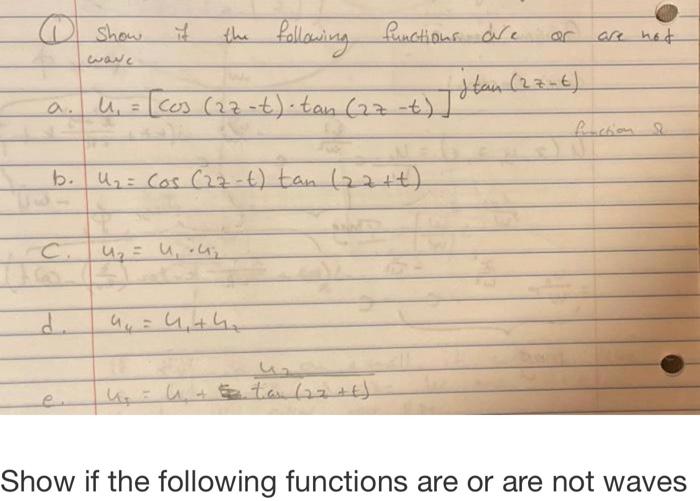 ① Show if the following functions are or are not
wave
a. u₁ = [cos (2z-t) · tan (2z-t)] ^ j tan (2z-t)
function
b. u₂ = cos (2z-t) tan (2z+t)
c. u₃ = u₁ · u₂
d. u₄ = u₁ + u₂
e. u₅ = u₁ + u₂ / tan (2z+t)
Show if the following functions are or are not waves